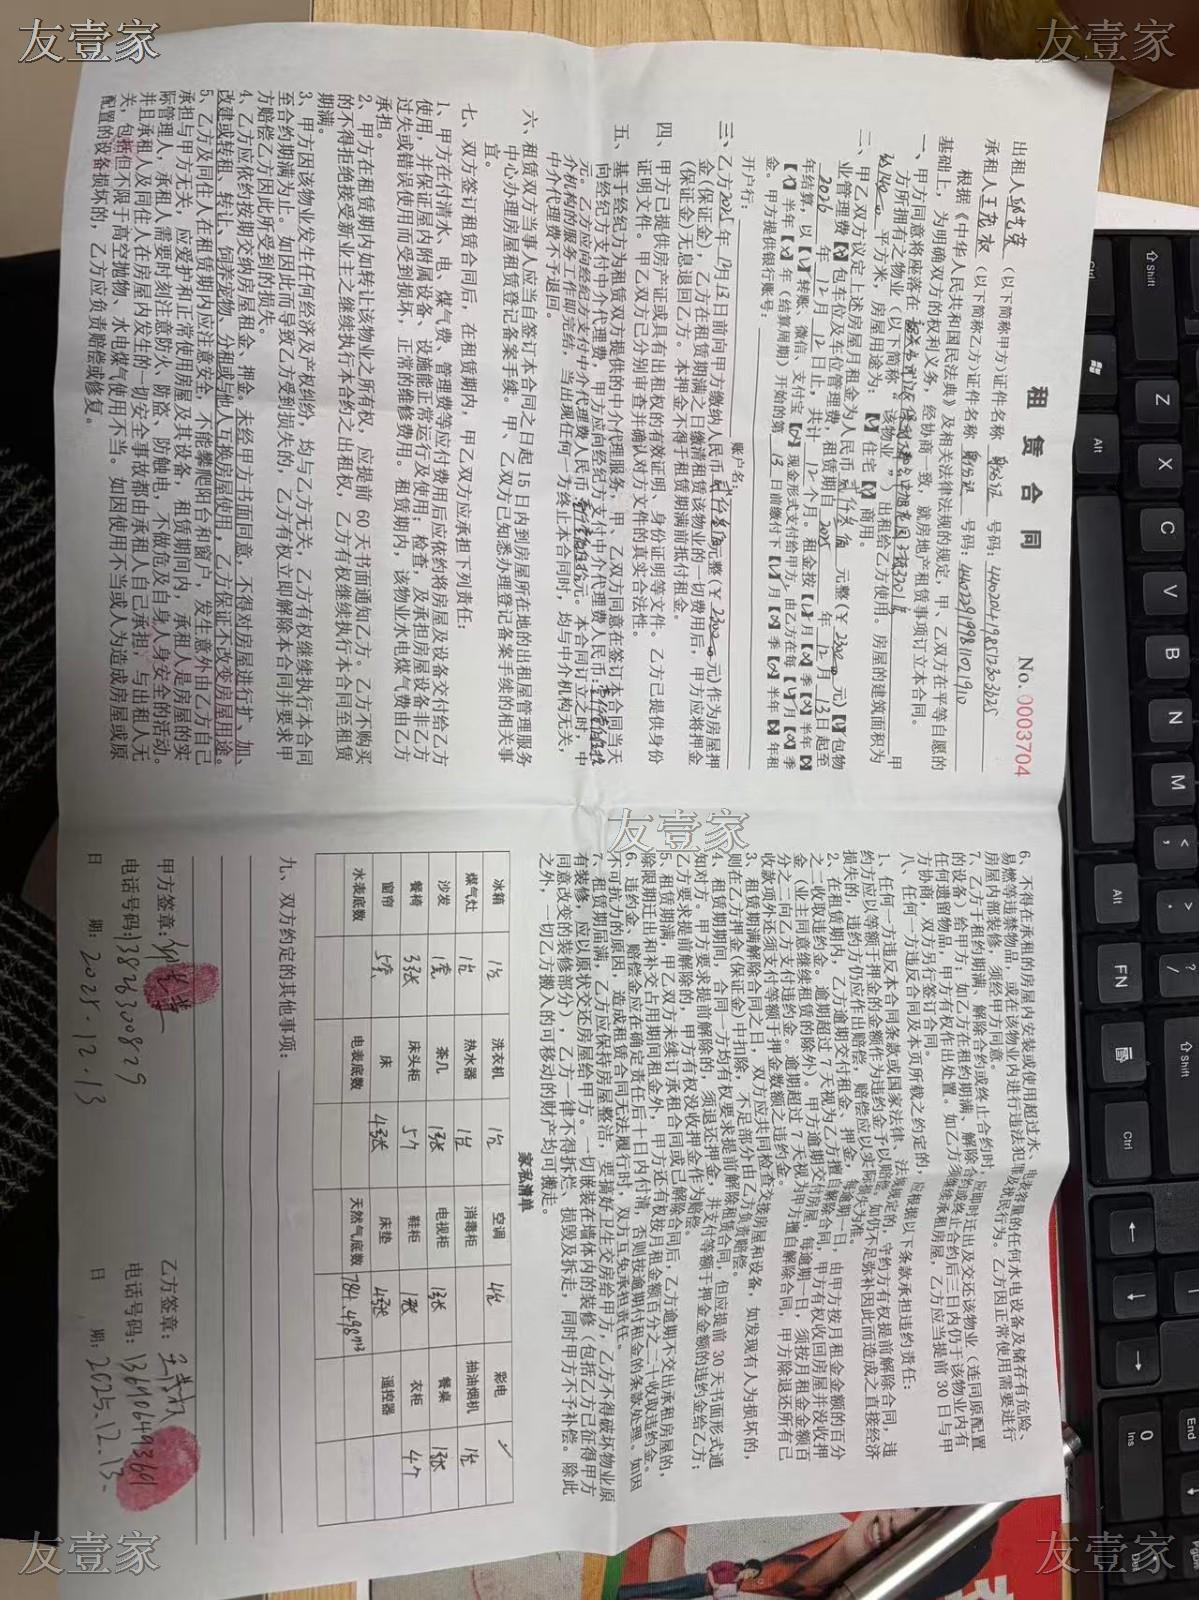 友壹家
友壹家
租 赁 合 同
No. 0003704
出租人 (以下简称甲方)证件名称 身份证 号码:
承租人 (以下简称乙方)证件名称 身份证 号码:
根据《中华人民共和国民法典》及相关法律法规的规定,甲、乙双方在平等自愿的
基础上,为明确双方的权利义务,经协商一致,就房地产租赁事项订立本合同。
一、甲方同意将座落在 甲
方所拥有之物业(以下简称“该物业”)出租给乙方使用。房屋的建筑面积为
平方米,房屋用途为:【√】住宅【×】商用。
二、甲乙双方议定上述房屋月租金为人民币 元整(¥ 2300 元)【×】包物
业管理费【×】包车位及车位管理费,租赁期自 2025 年 12 月 13 日起至
2026 年 12 月 12 日止,共计 12 个月。租金按【√】月【×】季【×】半年【×】
年结算,以【√】转账、微信、支付宝【×】现金形式支付给甲方,由乙方在每【√】月【×】季
【×】半年【×】年(结算周期)开始的第 13 日前缴付下【√】月【×】季【×】半年【×】年租
金。甲方提供银行账号:
开户行: 账户名:
三、乙方2025年12月13日前向甲方缴纳人民币 元整(¥ 2300 元)作为房屋押
金(保证金),乙方在租赁期满之日缴清租赁该物业的一切费用后,甲方应将押金
(保证金)无息退回乙方。本押金不得于租赁期满前抵付租金。
四、甲方已提供房产证或具有出租权的有效证明、身份证明等文件。乙方已提供身份
证明文件。甲乙双方已分别审查并确认对方文件的真实合法性。
五、基于经纪方为租赁双方提供的中介代理服务,甲、乙双方同意在签订本合同当天
向经纪方支付中介代理费,甲方应向经纪方支付中介代理费人民币
元。乙方应向经纪方支付中介代理费人民币 元。本合同订立之时,中
介机构的服务工作即完结,当出现任何一方终止本合同时,均与中介机构无关,
中介代理费不予退回。
六、租赁双方当事人应当自签订本合同之日起 15 日内到房屋所在地的出租屋管理服务
中心办理房屋租赁登记备案手续。甲、乙双方已知悉办理登记备案手续的相关事
宜。
七、双方签订租赁合同后,在租赁期内,甲乙双方应承担下列责任:
1、甲方在付清水、电、煤气费、管理费等应付费用后应依约将房屋及设备交付给乙方
使用,并保证屋内附属设备、设施能正常运行及使用;检查,及承担房屋设备非乙方
过失或错误使用而受到损坏,正常的维修费用。租赁期内,该物业水电煤气费由乙方
承担。
2、甲方在租赁期内如转让该物业之所有权,应提前 60 天书面通知乙方。乙方不购买
的不得拒绝接受新业主之继续执行本合约之出租权,乙方有权继续执行本合同至租赁
期满。
3、甲方因该物业发生任何经济及产权纠纷,均与乙方无关,乙方有权继续执行本合同
至合约期满为止。如因此而导致乙方受到损失的,乙方有权立即解除本合同并要求甲
方赔偿乙方因此所受到的损失。
4、乙方应依约按期交纳房屋租金、押金。未经甲方书面同意,不得对房屋进行扩、加、
改建或转租、转让、饲养宠物、分租或与他人互换房屋使用,乙方保证不改变房屋用途。
5、乙方及同住人在租赁期内应注意安全,不能攀爬阳台和窗户,发生意外由乙方自己
承担与甲方无关,应爱护和正常使用房屋及其设备,租赁期间内,承租人是房屋的实
际管理人,承租人需要时刻注意防火、防盗、防触电,不做危及自身人身安全的活动。
并且承租人及同住人在房屋内发生的一切安全事故都由承租人自己承担,与出租人无
关,包括但不限于高空抛物、水电煤气使用不当。如因使用不当或人为造成房屋或原
配置的设备损坏的,乙方应负责赔偿或修复。
友壹家
6、不得在承租的房屋内安装或使用超过水、电表容量的任何水电设备及储存有危险、
易燃等违禁物品,或在该物业内进行违法犯罪及扰民行为。乙方因正常使用需要进行
房屋内部装修,须经甲方同意。
7、乙方于租约期满、解除合约或终止合约时,应即时迁出及交还该物业(连同原配置
的设备)给甲方;如乙方在租约期满、解除合约或终止合约后三日内仍于该物业内有
任何遗留物品,甲方有权作出处置。如乙方须继续承租房屋,乙方应当提前 30 日与甲
方协商,双方另行签订合同。
八、任何一方违反合同及本页所载之约定的,应根据以下条款承担违约责任:
1、任何一方违反本合同条款或国家法律、法规规定的,守约方有权提前解除合同,违
约方应以等额于押金的金额作为违约金予以赔偿。如仍不足弥补因此而造成之直接经济
损失的,违约方仍应作出赔偿,赔偿应以实际损失为准。
2、在租赁期内,乙方逾期交付租金、押金,每逾期一日,由甲方按月租金金额的百分
之二收取违约金。逾期超过 7 天视为乙方擅自解除合同,甲方有权收回房屋并没收押
金(业主同意继续租赁的除外)。甲方逾期交付房屋,每逾期一日,须按月租金金额百
分之二向乙方支付违约金。逾期超过 7 天视为甲方擅自解除合同,甲方除退还所有已
收款项外还须支付等额于押金数额之违约金。
3、租赁期满解除合同之日,双方应共同检查交接房屋和设备,如发现有人为损坏的,
则在乙方押金(保证金)中扣除,不足部分由乙方负责赔偿。
4、租赁期期间,合同一方均有权要求提前解除租赁合同,但应提前 30 天书面形式通
知对方。甲方要求提前解除的,须退还押金,并支付等额于押金金额的违约金给乙方;
乙方要求提前解除的,甲方有权没收押金作为赔偿。
5、租赁期满,乙方未续订承租合同或已解除合同后,乙方逾期不交出承租房屋的,
除限期迁出和补交占用期间租金外,甲方还有权按月租金额百分之二十收取违约金。
6、违约金、赔偿金应在确定责任后十日内付清,否则按逾期付租金的条款处理。如因
不可抗力的原因,造成租赁合同无法履行时,双方互免承担责任。
7、租赁期届满,乙方应保持房屋整洁,要搞好卫生交房给甲方,乙方不得破坏物业原
有装修,应以原状交还房屋给甲方。一切嵌装在墙体内的装修(包括乙方已征得甲方
同意改变的装修部分),乙方一律不得拆烂、损毁及拆走,同时甲方不予补偿。除此
之外,一切乙方搬入的可移动的财产均可搬走。
家私清单
冰箱 1台 洗衣机 1台 空调 4台 彩电
煤气灶 1台 热水器 1台 消毒柜 抽油烟机 1台
沙发 1套 茶几 1张 电视柜 1张 餐桌 1张
餐椅 3张 床头柜 5个 鞋柜 1张 衣柜 4个
窗帘 5套 床 4张 床垫 4张 遥控器
水表底数 电表底数 天然气底数 7841.498m³
九、双方约定的其他事项:
甲方签章: 乙方签章:
电话号码:13826300829 电话号码:13640649361
日 期:2025.12.13 日 期:2025.12.13.
友壹家
友壹家